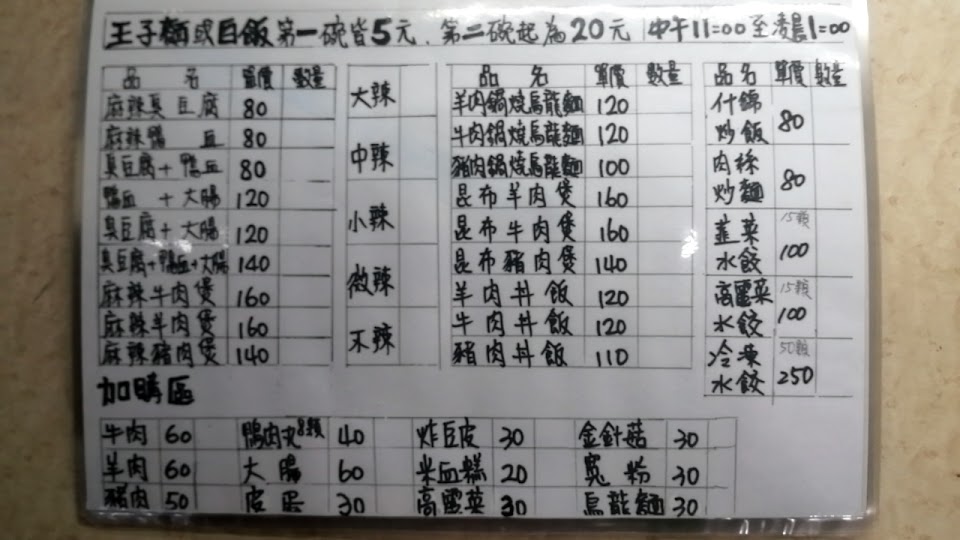 王子麵或白飯第一碗皆5元.第二碗起為20元 中午11:00至凌晨1:00
品名 單價 數量
麻辣臭豆腐 80
麻辣鴨血 80
臭豆腐+鴨血 80
鴨血+大腸 120
臭豆腐+大腸 120
臭豆腐+鴨血+大腸 140
麻辣牛肉煲 160
麻辣羊肉煲 160
麻辣豬肉煲 140
大辣
中辣
小辣
微辣
不辣
品名 單價 數量
羊肉鍋燒烏龍麵 120
牛肉鍋燒烏龍麵 120
豬肉鍋燒烏龍麵 100
昆布羊肉煲 160
昆布牛肉煲 160
昆布豬肉煲 140
羊肉丼飯 120
牛肉丼飯 120
豬肉丼飯 110
品名 單價 數量
什錦
炒飯 80
肉絲
炒麵 80
韮菜 15顆
水餃 100
高麗菜 15顆
水餃 100
冷凍 50顆
水餃 250
加購區
牛肉 60 鴨肉丸8顆 40 炸豆皮 30 金針菇 30
羊肉 60 大腸 60 米血糕 20 寬粉 30
豬肉 50 皮蛋 30 高麗菜 30 烏龍麵 30